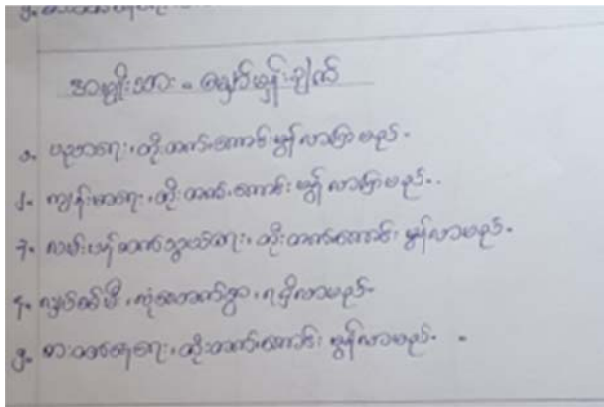 အမျိုးသား - မျှော်မှန်းချက်
၁. ပညာရေး၊ တိုးတက်ကောင်းမွန်လာမည်။
၂. ကျန်းမာရေး၊ တိုးတက်ကောင်းမွန်လာမည်။
၃. လမ်းပန်းဆက်သွယ်ရေး၊ တိုးတက်ကောင်းမွန်လာမည်။
၄. လျှပ်စစ်မီး၊ လုံလောက်စွာ၊ ရရှိလာမည်။
၅. စားဝတ်နေရေး၊ တိုးတက်ကောင်းမွန်လာမည်။